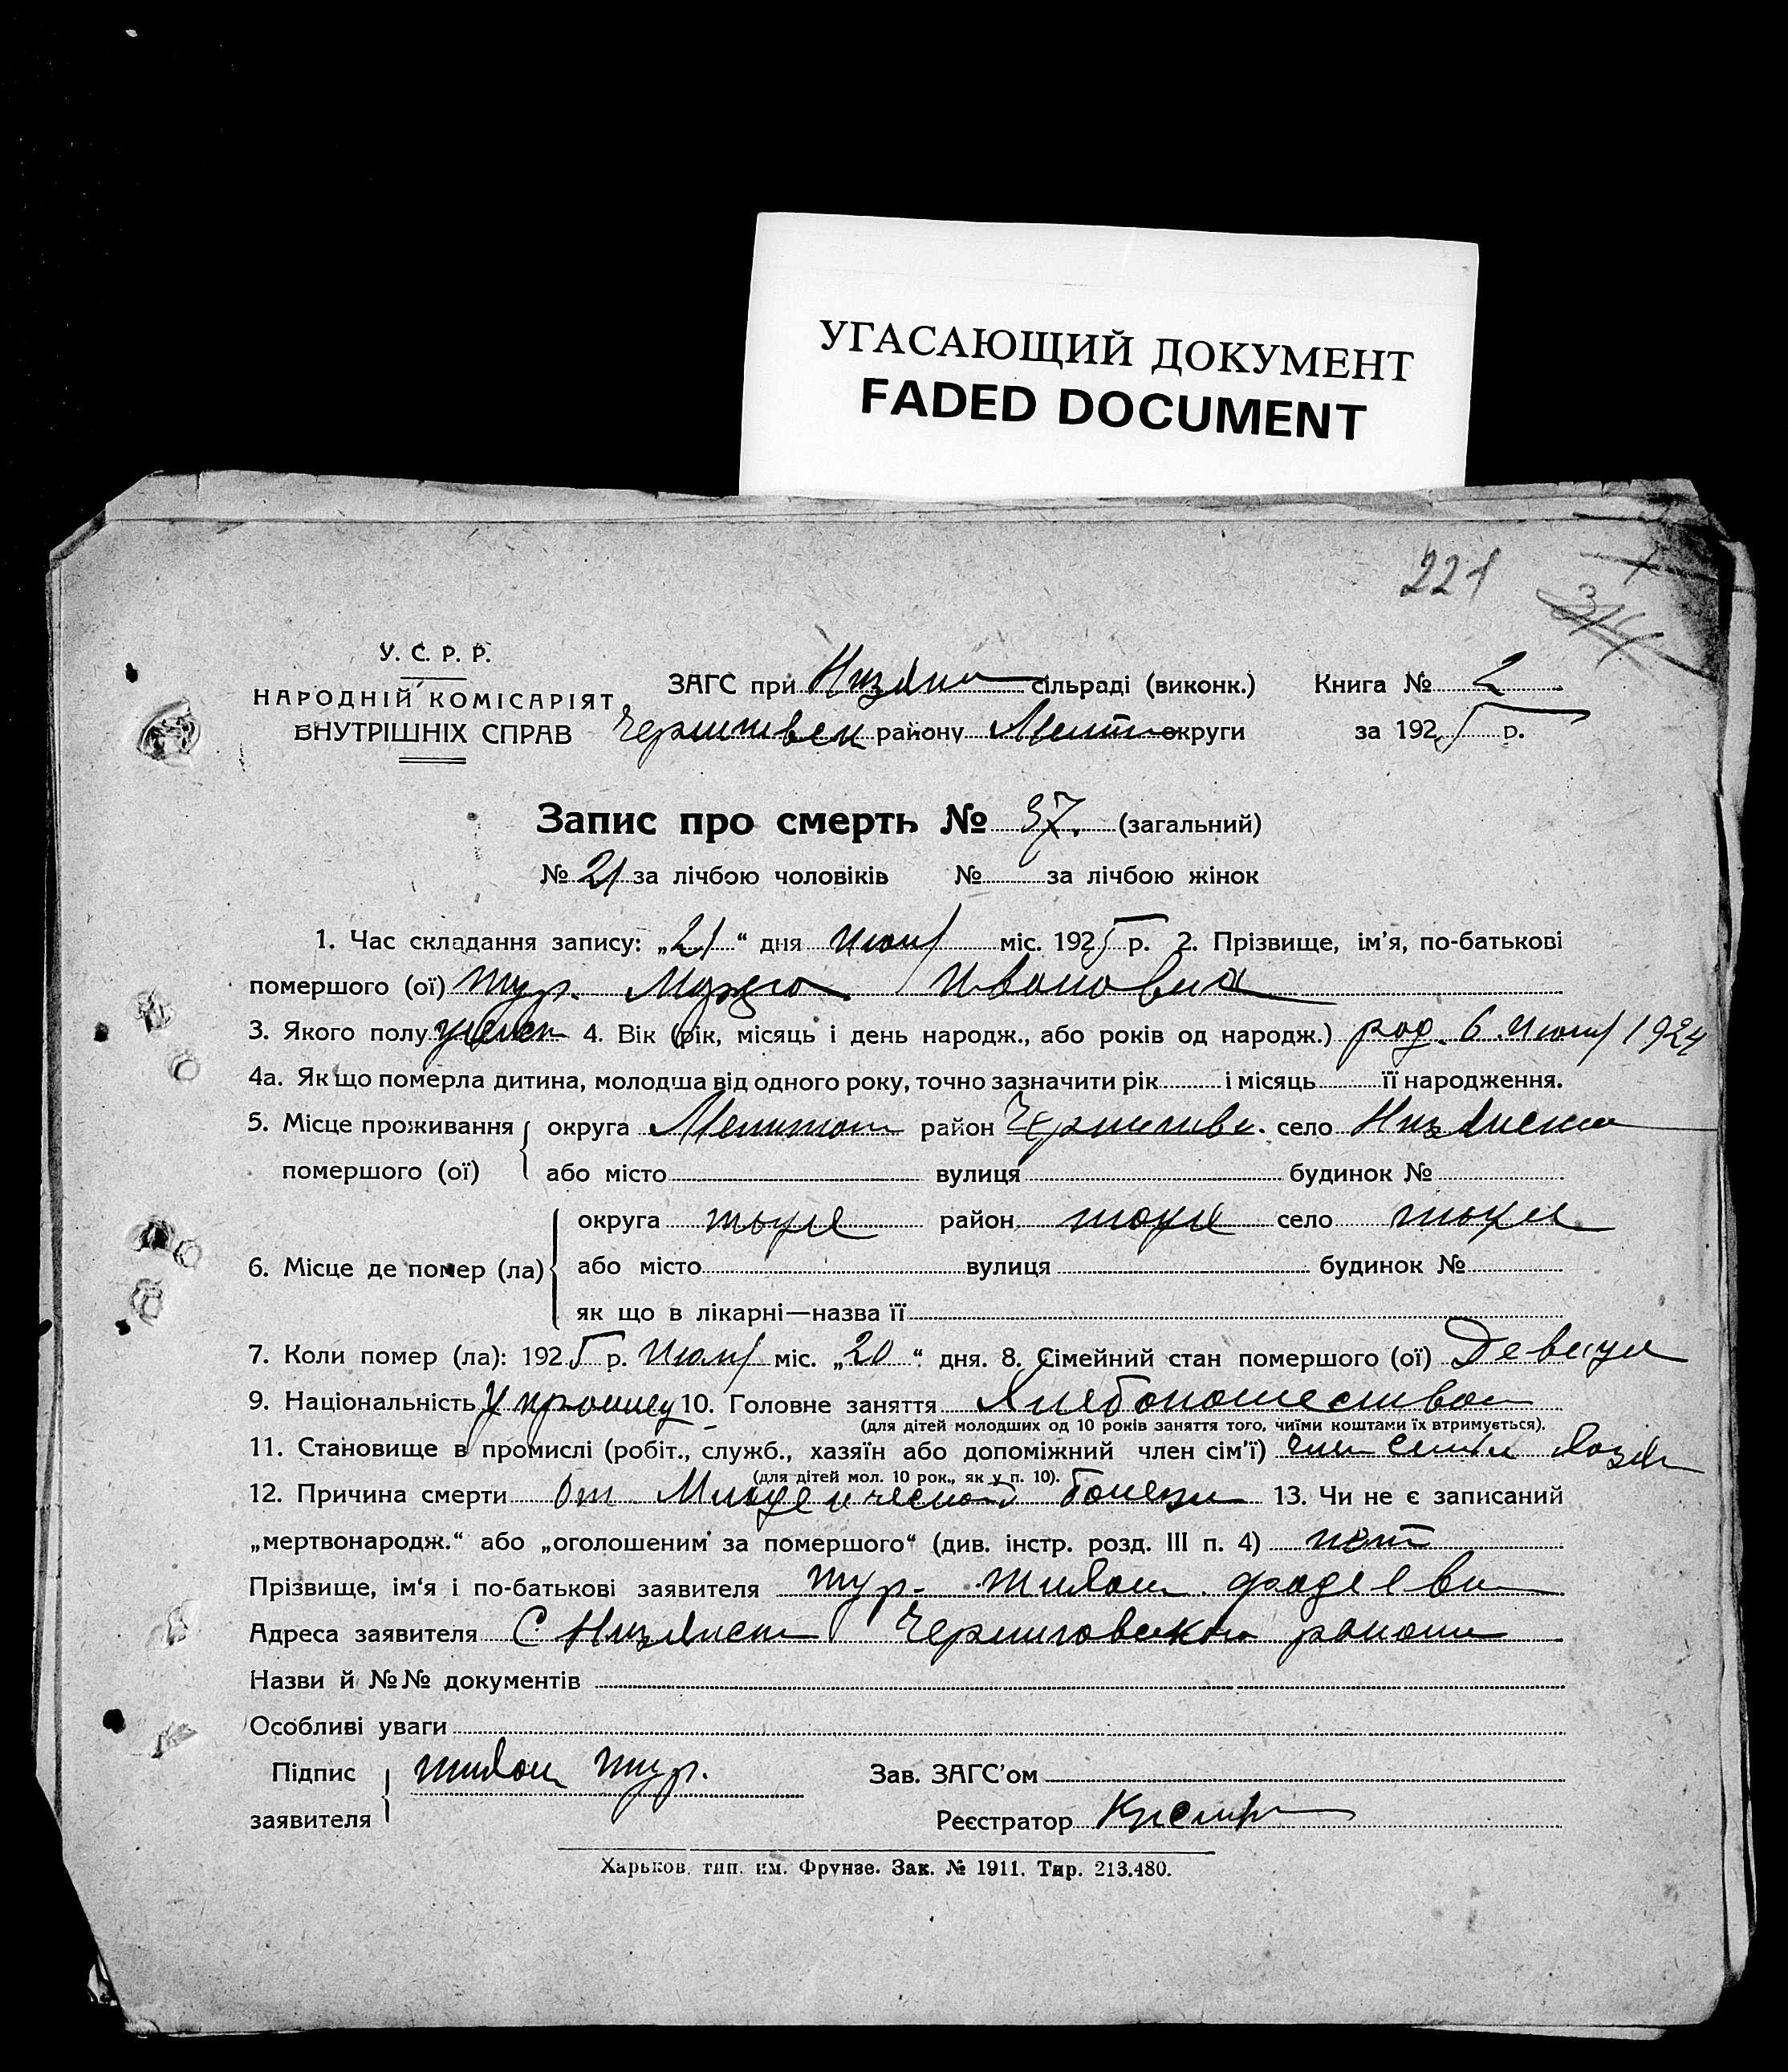 УГАСАЮЩИЙ ДОКУМЕНТ
FADED DOCUMENT
221
314
У. С. Р. Р.
НАРОДНІЙ КОМІСАРІЯТ
ВНУТРІШНІХ СПРАВ
ЗАГС при сільраді (виконк.) Книга № 2
району округи за 1925 р.
Запис про смерть № 37. (загальний)
№ 21 за лічбою чоловіків № за лічбою жінок
1. Час складання запису: „21“ дня Июля міс. 1925 р. 2. Прізвище, ім'я, по-батькові
помершого (ої) Тур. Ивановна
3. Якого полу 4. Вік (рік, місяць і день народж., або років од народж.) род. 6 Июля 1924
4а. Як що померла дитина, молодша від одного року, точно зазначити рік і місяць її народження.
5. Місце проживання округа район село
помершого (ої) або місто вулиця будинок №
округа тоже район тоже село тоже
6. Місце де помер (ла) або місто вулиця будинок №
як що в лікарні—назва її
7. Коли помер (ла): 1925 р. Июля міс. „20“ дня. 8. Сімейний стан помершого (ої) Девица
9. Національність 10. Головне заняття
(для дітей молодших од 10 років заняття того, чиїми коштами їх втримується).
11. Становище в промислі (робіт., служб., хазяїн або допоміжний член сім'ї) член семьи
(для дітей мол. 10 рок., як у п. 10).
12. Причина смерти от Младенческой болезни 13. Чи не є записаний
„мертвонародж.“ або „оголошеним за помершого“ (див. інстр. розд. III п. 4) нет
Прізвище, ім'я і по-батькові заявителя Тур.
Адреса заявителя С. Черниговского района
Назви й №№ документів
Особливі уваги
Підпис Тур. Зав. ЗАГС'ом
заявителя Реєстратор
Харьков, тип. им. Фрунзе. Зак. № 1911. Тир. 213.480.